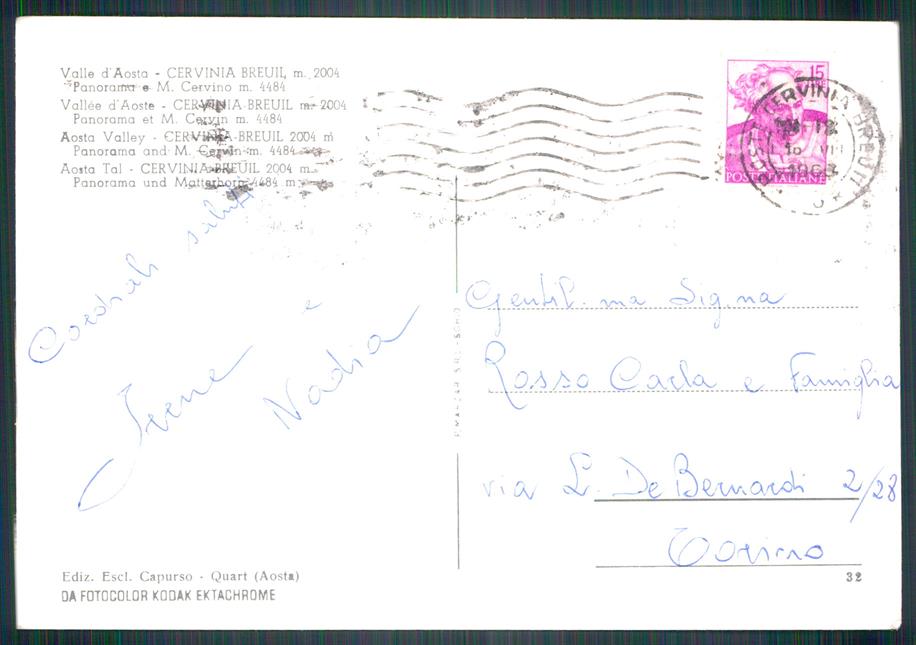 Valle d'Aosta - CERVINIA BREUIL m. 2004
Panorama e M. Cervino m. 4484
Vallée d'Aoste - CERVINIA-BREUIL m. 2004
Panorama et M. Cervin m. 4484
Aosta Valley - CERVINIA-BREUIL 2004 m
Panorama and M. Cervin m. 4484
Aosta Tal - CERVINIA-BREUIL 2004 m
Panorama und Matterhorn 4484 m
15
POSTE ITALIANE
CERVINIA BREUIL
1963
Cordiali saluti
Irene e
Nadia
Gentil.ma Sig.na
Rosso Carla e Famiglia
via L. De Bernardi 2/28
Torino
Ediz. Escl. Capurso - Quart (Aosta)
DA FOTOCOLOR KODAK EKTACHROME
32